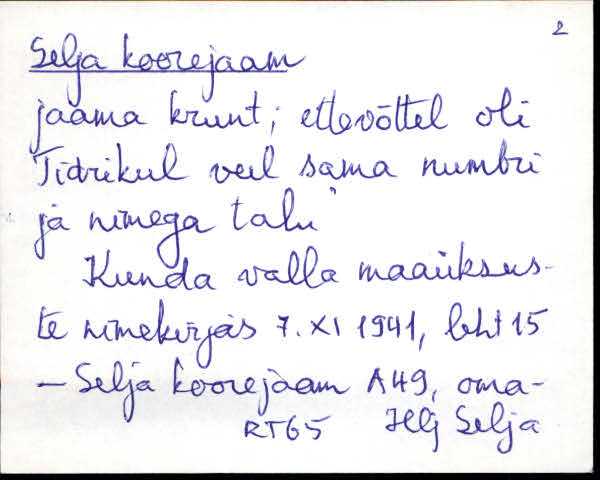 2
Selja koorejaam
jaama krunt; ettevõttel oli
Tidrikul veel sama numbri
ja nimega talu"
Kunda valla maaüksus-
te nimekirjas 7. XI 1941, leht 15
– Selja koorejaam A49, oma-
RT65 Hlj Selja